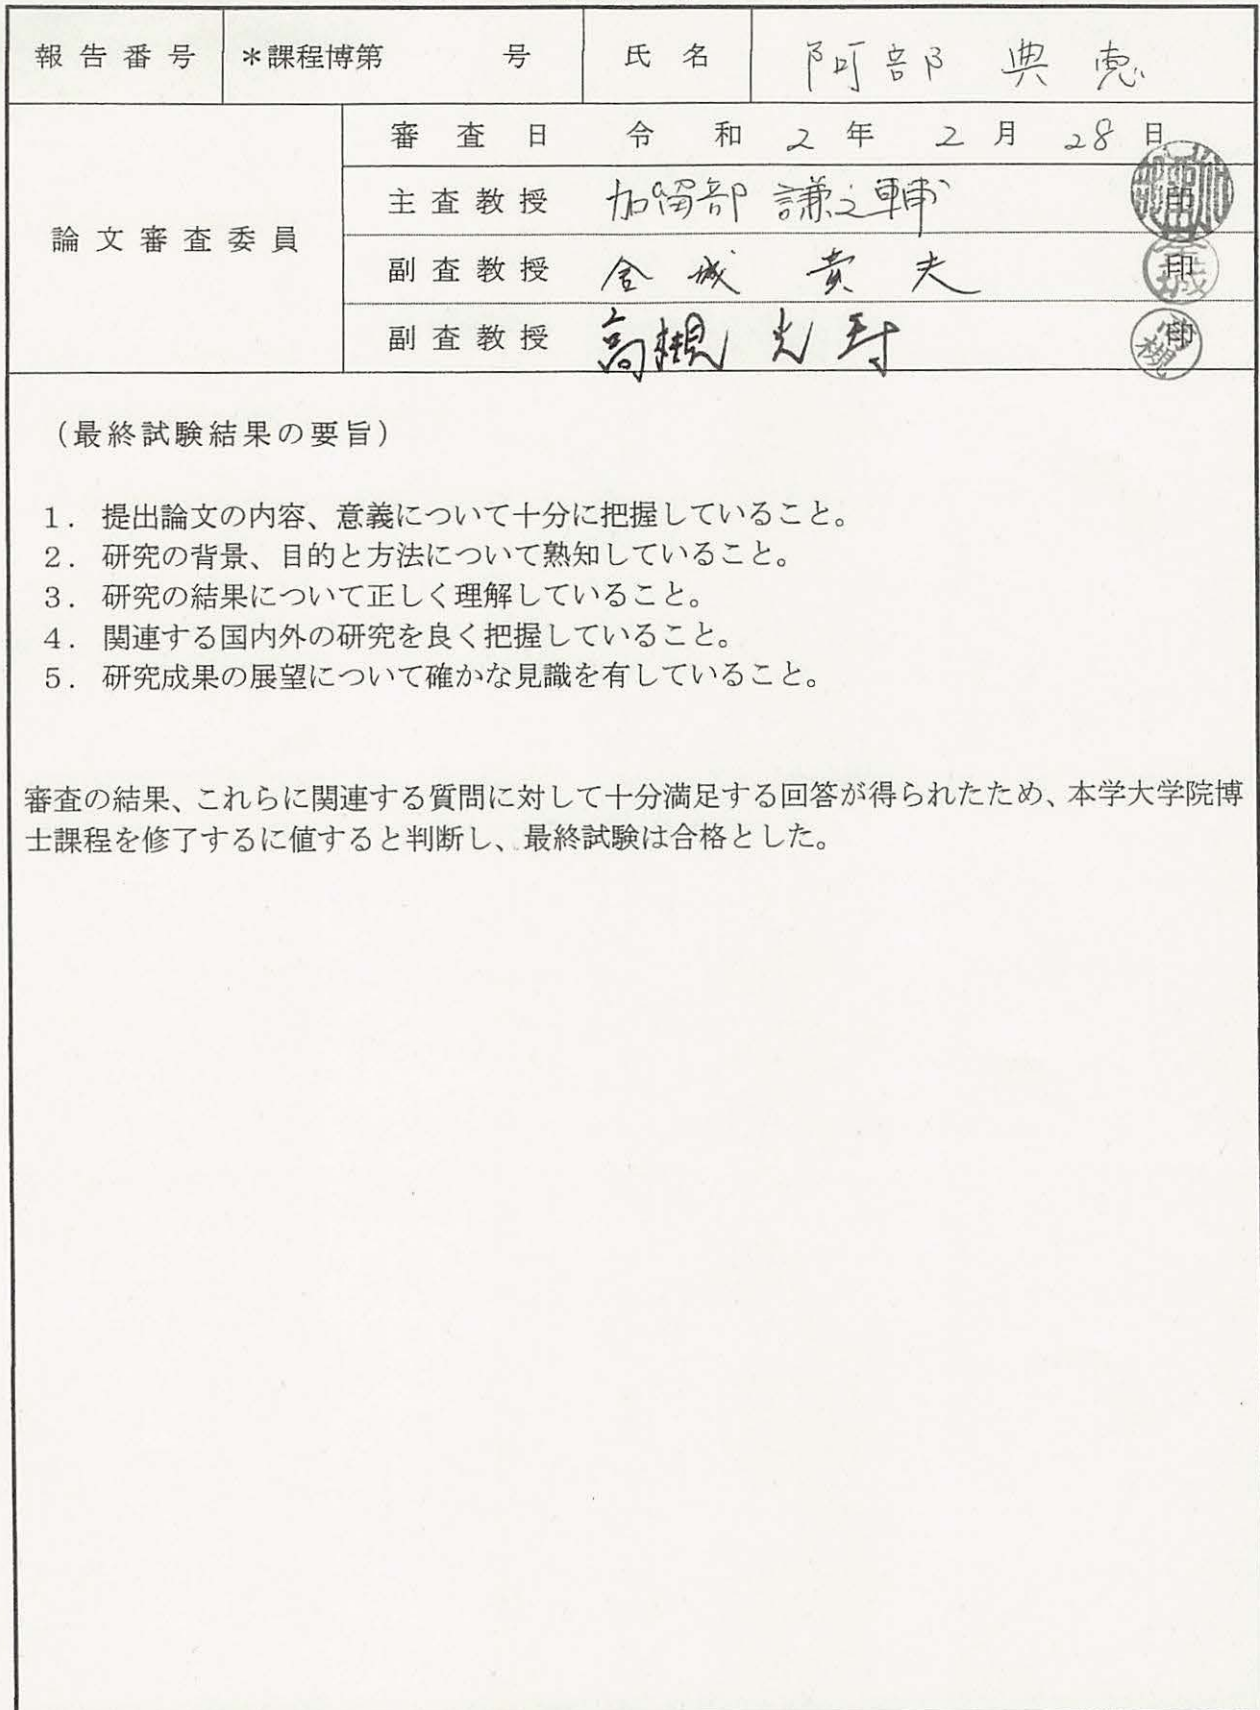 報告番号 *課程博第 号 氏名 阿部 典恵
論文審査委員
審査日 令和2年2月28日
主査教授 加留部 謙之輔 印
副査教授 金城 貴夫 印
副査教授 高槻 光寿 印
(最終試験結果の要旨)
1. 提出論文の内容、意義について十分に把握していること。
2. 研究の背景、目的と方法について熟知していること。
3. 研究の結果について正しく理解していること。
4. 関連する国内外の研究を良く把握していること。
5. 研究成果の展望について確かな見識を有していること。
審査の結果、これらに関連する質問に対して十分満足する回答が得られたため、本学大学院博
士課程を修了するに値すると判断し、最終試験は合格とした。